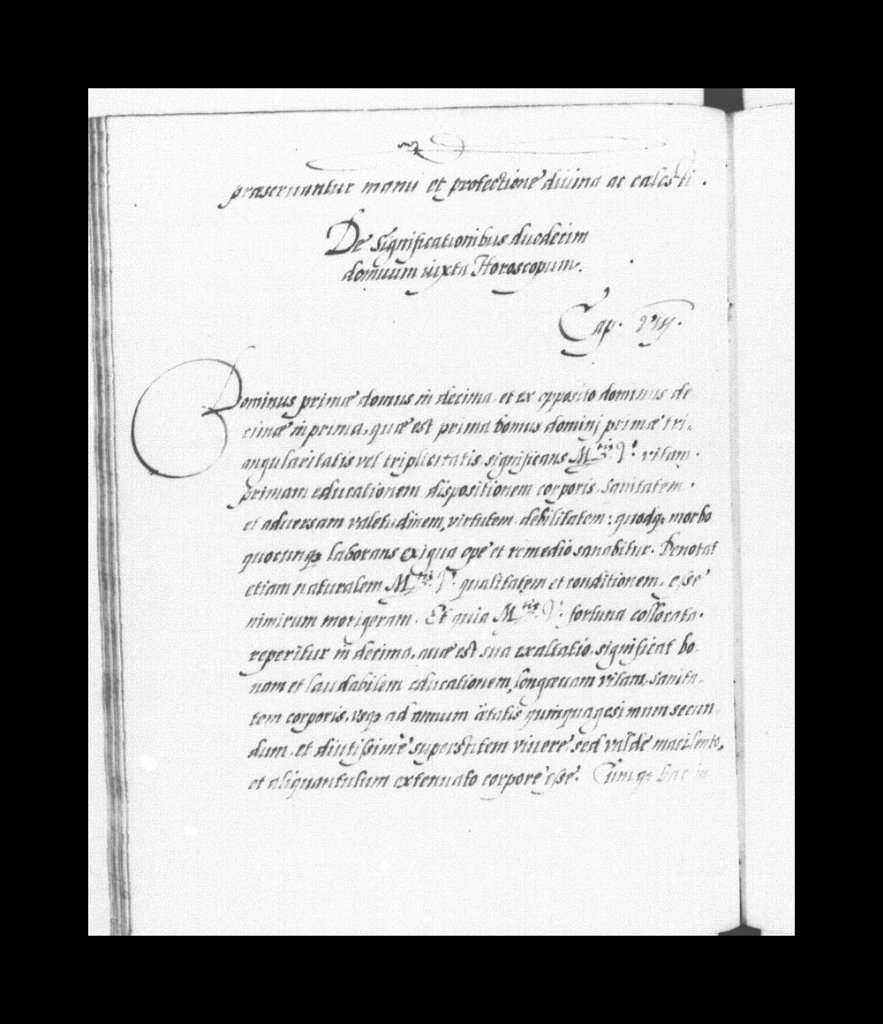 præseruantur manu et protectione diuina ac cælesti.
De significationibus duodecim
domuum iuxta Horoscopum.
Cap.
Dominus primæ domus in decima, et ex opposito dominus de
cimæ in prima, quæ est prima bonus dominj primæ tri,
angularitatis vel triplicitatis, significans M.tis V.e vitam,
primam educationem, dispositionem corporis, sanitatem,
et aduersam valetudinem, virtutem, debilitatem: quodq; morbo
quocunq; laborans exiqua ope et remedio sanabitur. Denotat
etiam naturalem M.tis V.e qualitatem et conditionem, esse
nimirum morigeram. Et quia M.tis V. fortuna collocata
reperitur in decima, quæ est sua exaltatio, significat bo
nam et laudabilem educationem, longæuam vitam, sanita,
tem corporis, vsq; ad annum ætatis quinquagesimum secun
dum, et diutissimè superstitem viuere sed valdè macilento,
et aliquantulum extenuato corpore esse. Cumq; hac in